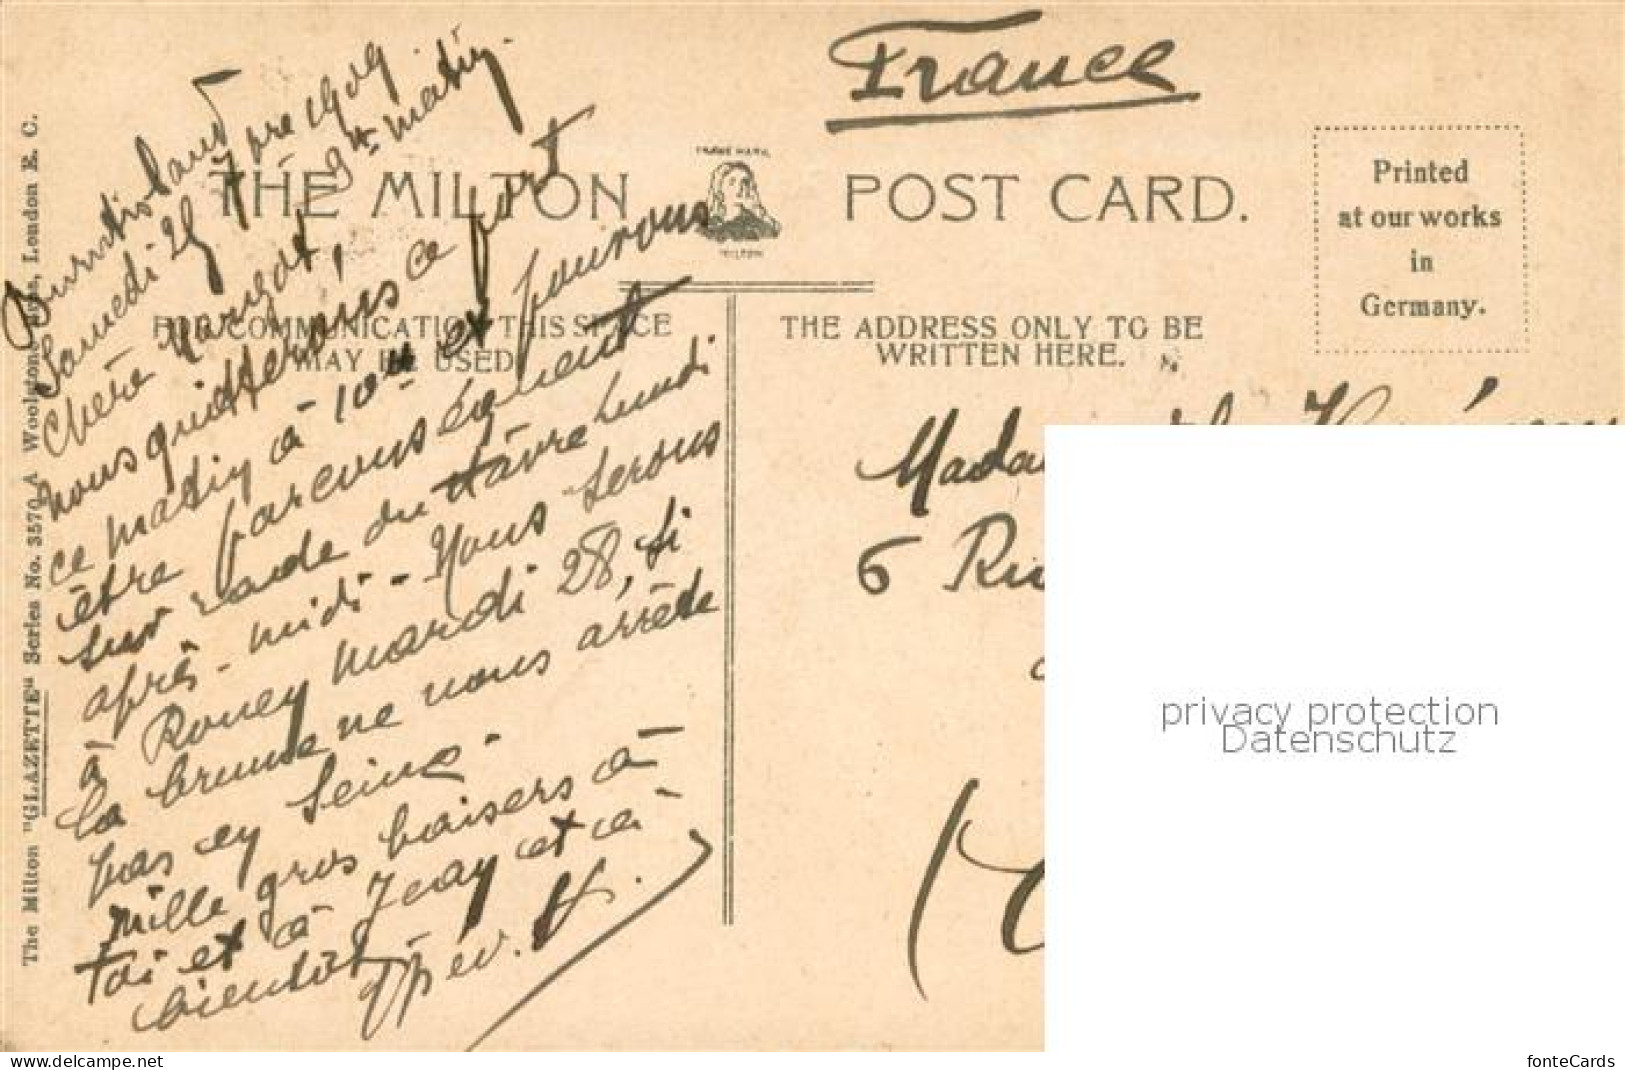 France
THE MILTON POST CARD.
TRADE MARK
MILTON
Printed
at our works
in
Germany.
FOR COMMUNICATION THIS SPACE
MAY BE USED
THE ADDRESS ONLY TO BE
WRITTEN HERE.
The Milton "GLAZETTE" Series No. 3570 A Woolstone Bros, London E. C.
Burntisland
Samedi 25 7bre 1909
9h matin.
Chère Margot,
nous quitterons ce port
ce matin à 10h et pourrons
être par conséquent
sur rade du Hâvre lundi
après-midi - Nous serons
à Rouen mardi 28, si
la brume ne nous arrête
pas en Seine -
Mille gros baisers à
toi et à Jean et à
bientôt
6
privacy protection
Datenschutz
www.delcampe.net
fonteCards